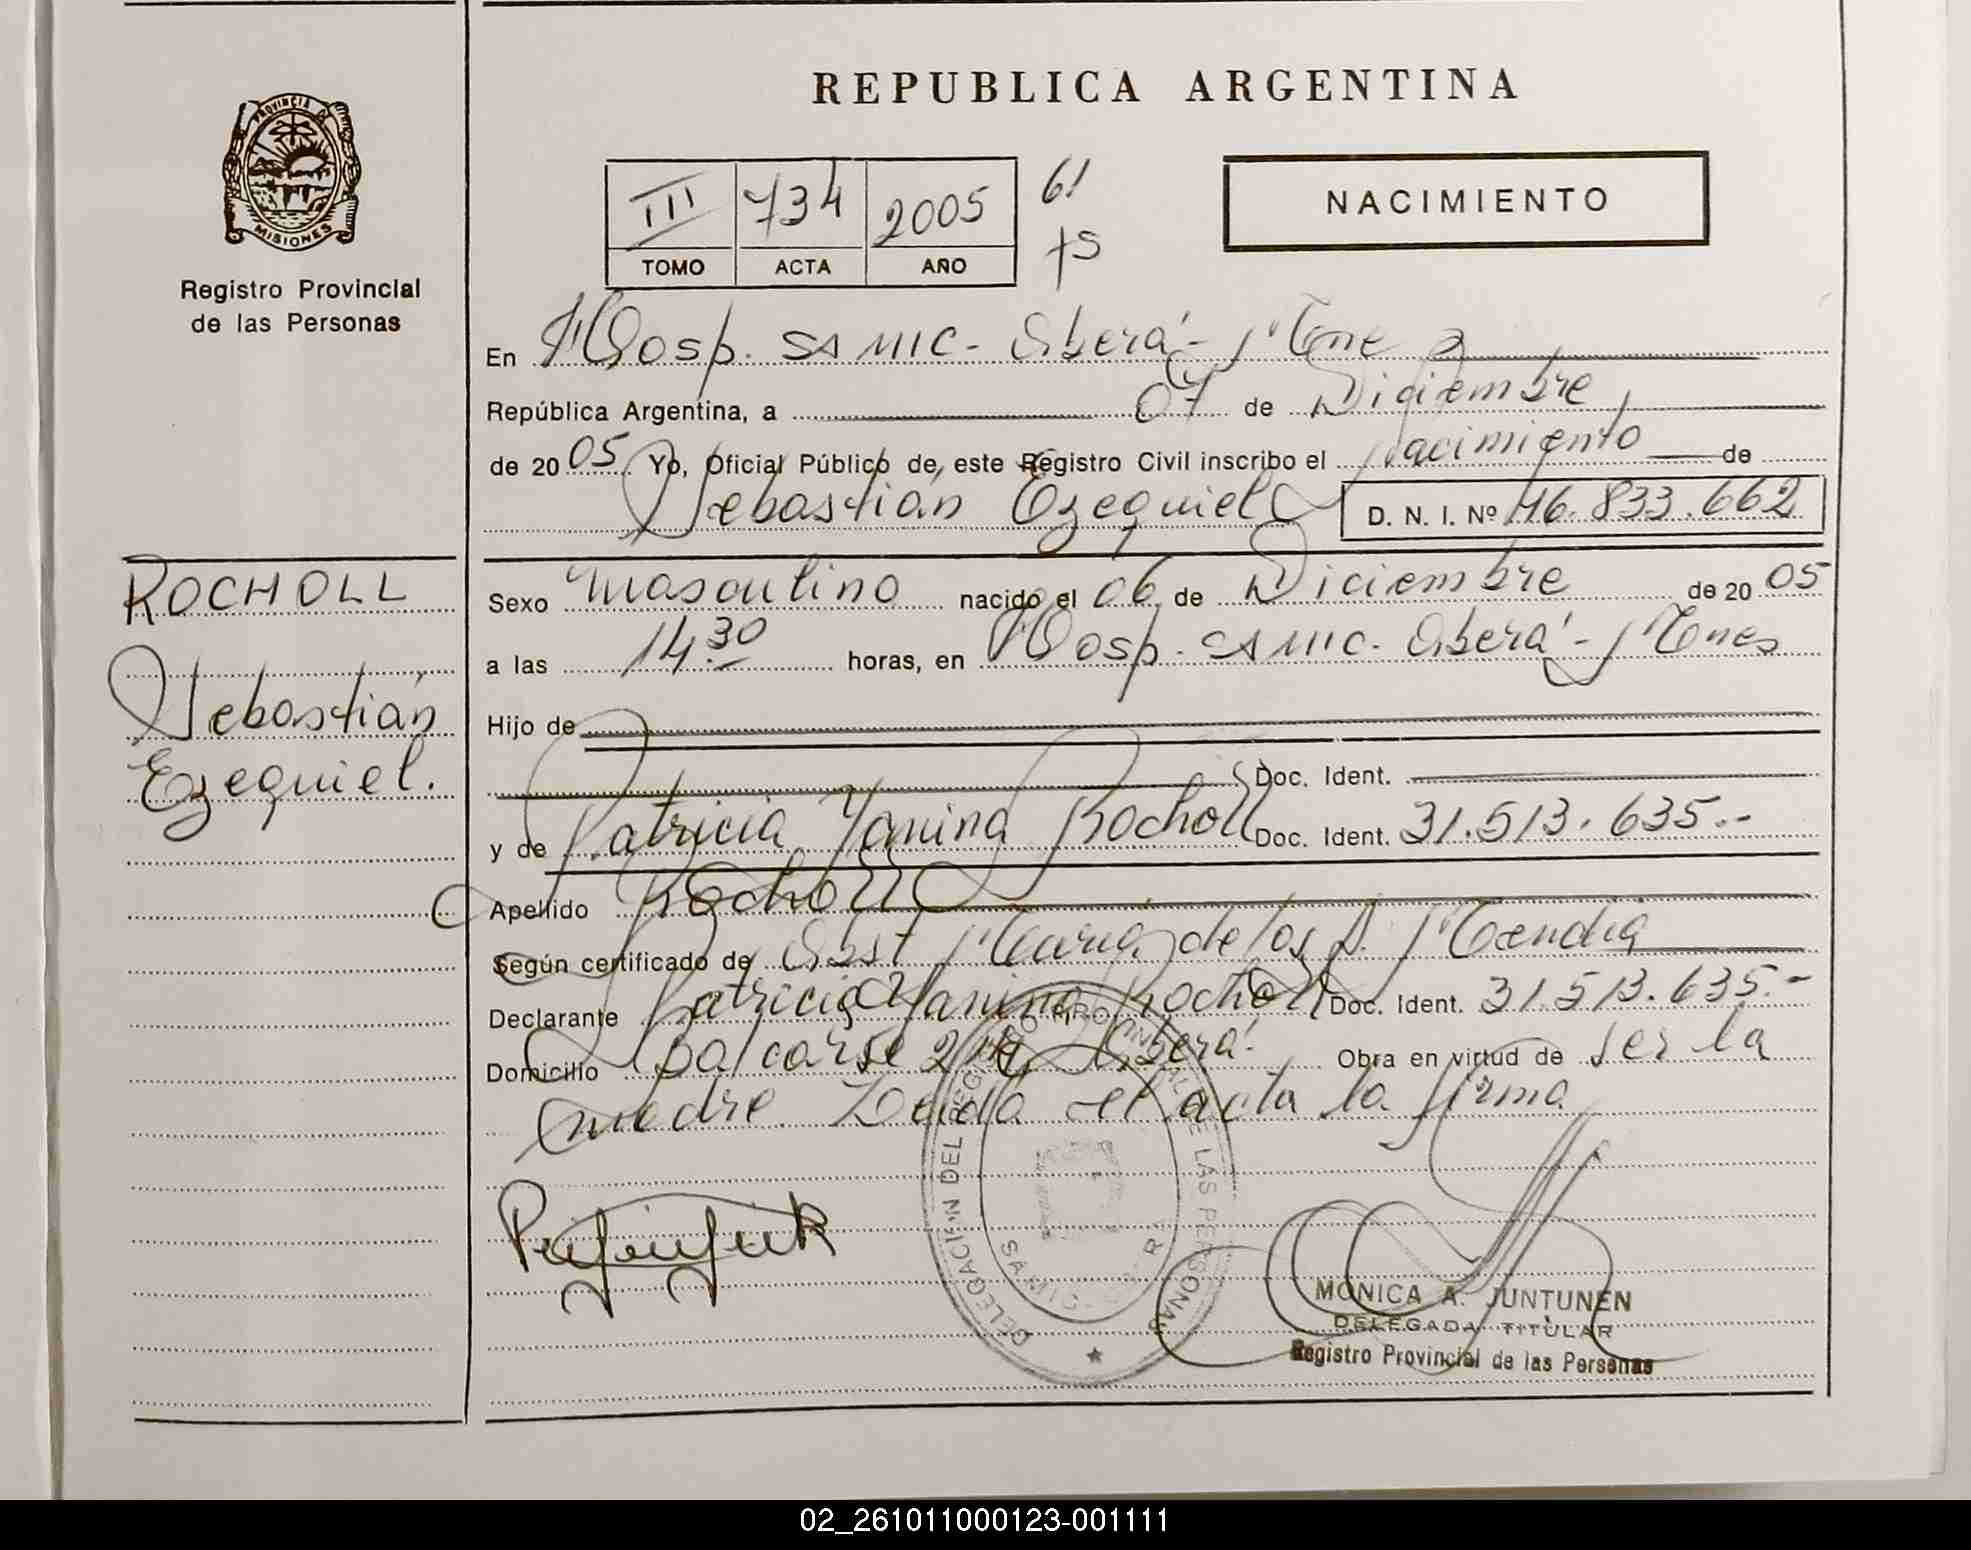 PROVINCIA DE
MISIONES
Registro Provincial
de las Personas
REPUBLICA ARGENTINA
III 734 2005 61
75
TOMO ACTA AÑO
NACIMIENTO
En Hosp. SAMIC - Oberá - Mnes
República Argentina, a 07 de Diciembre
de 2005 Yo, Oficial Público de este Registro Civil inscribo el Nacimiento de
Sebastián Ezequiel D. N. I. Nº 46.833.662
ROCHOLL
Sebastián
Ezequiel.
Sexo Masculino nacido el 06 de Diciembre de 2005
a las 14.30 horas, en Hosp. SAMIC. Oberá - Mnes
Hijo de
Doc. Ident.
y de Patricia Yanina Rocholl Doc. Ident. 31.513.635.-
Apellido Rocholl
Según certificado de Obst María de los A. Mendia
Declarante Patricia Yanina Rocholl Doc. Ident. 31.513.635.-
Domicilio Balcarse Oberá. Obra en virtud de ser la
madre. Leida el acta la firma
DELEGACION DEL REGISTRO PROVINCIAL DE LAS PERSONAS
MONICA A. JUNTUNEN
DELEGADA TITULAR
Registro Provincial de las Personas
02_261011000123-001111